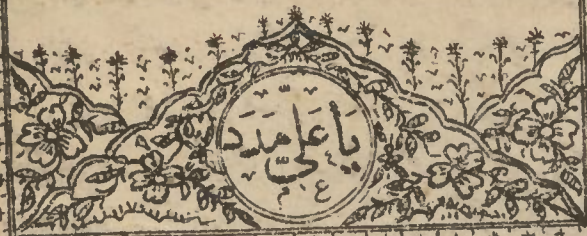 یا علی مدد